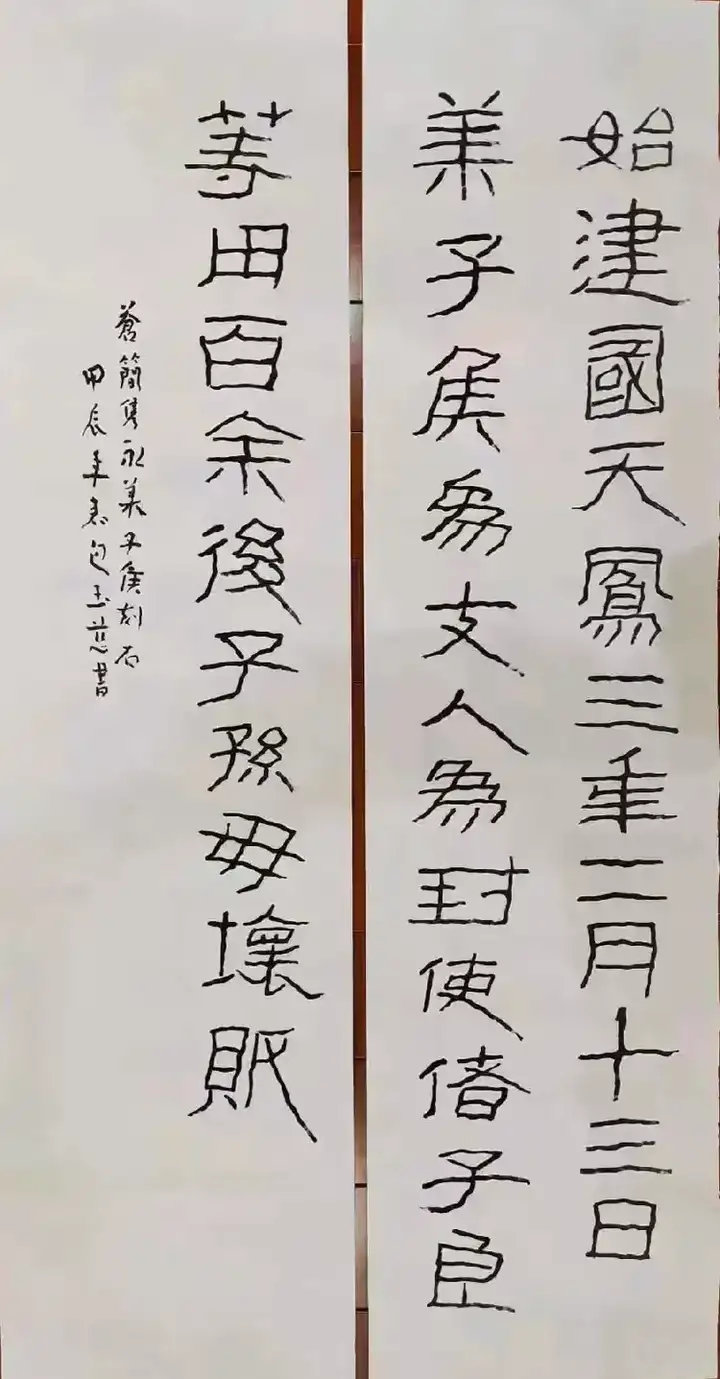 始建國天鳳三年二月十三日
萊子侯為支人為封使偖子臣
等田百余後子孫毋壞敗
蒼簡隽永萊子侯刻石
甲辰年春包玉慈書